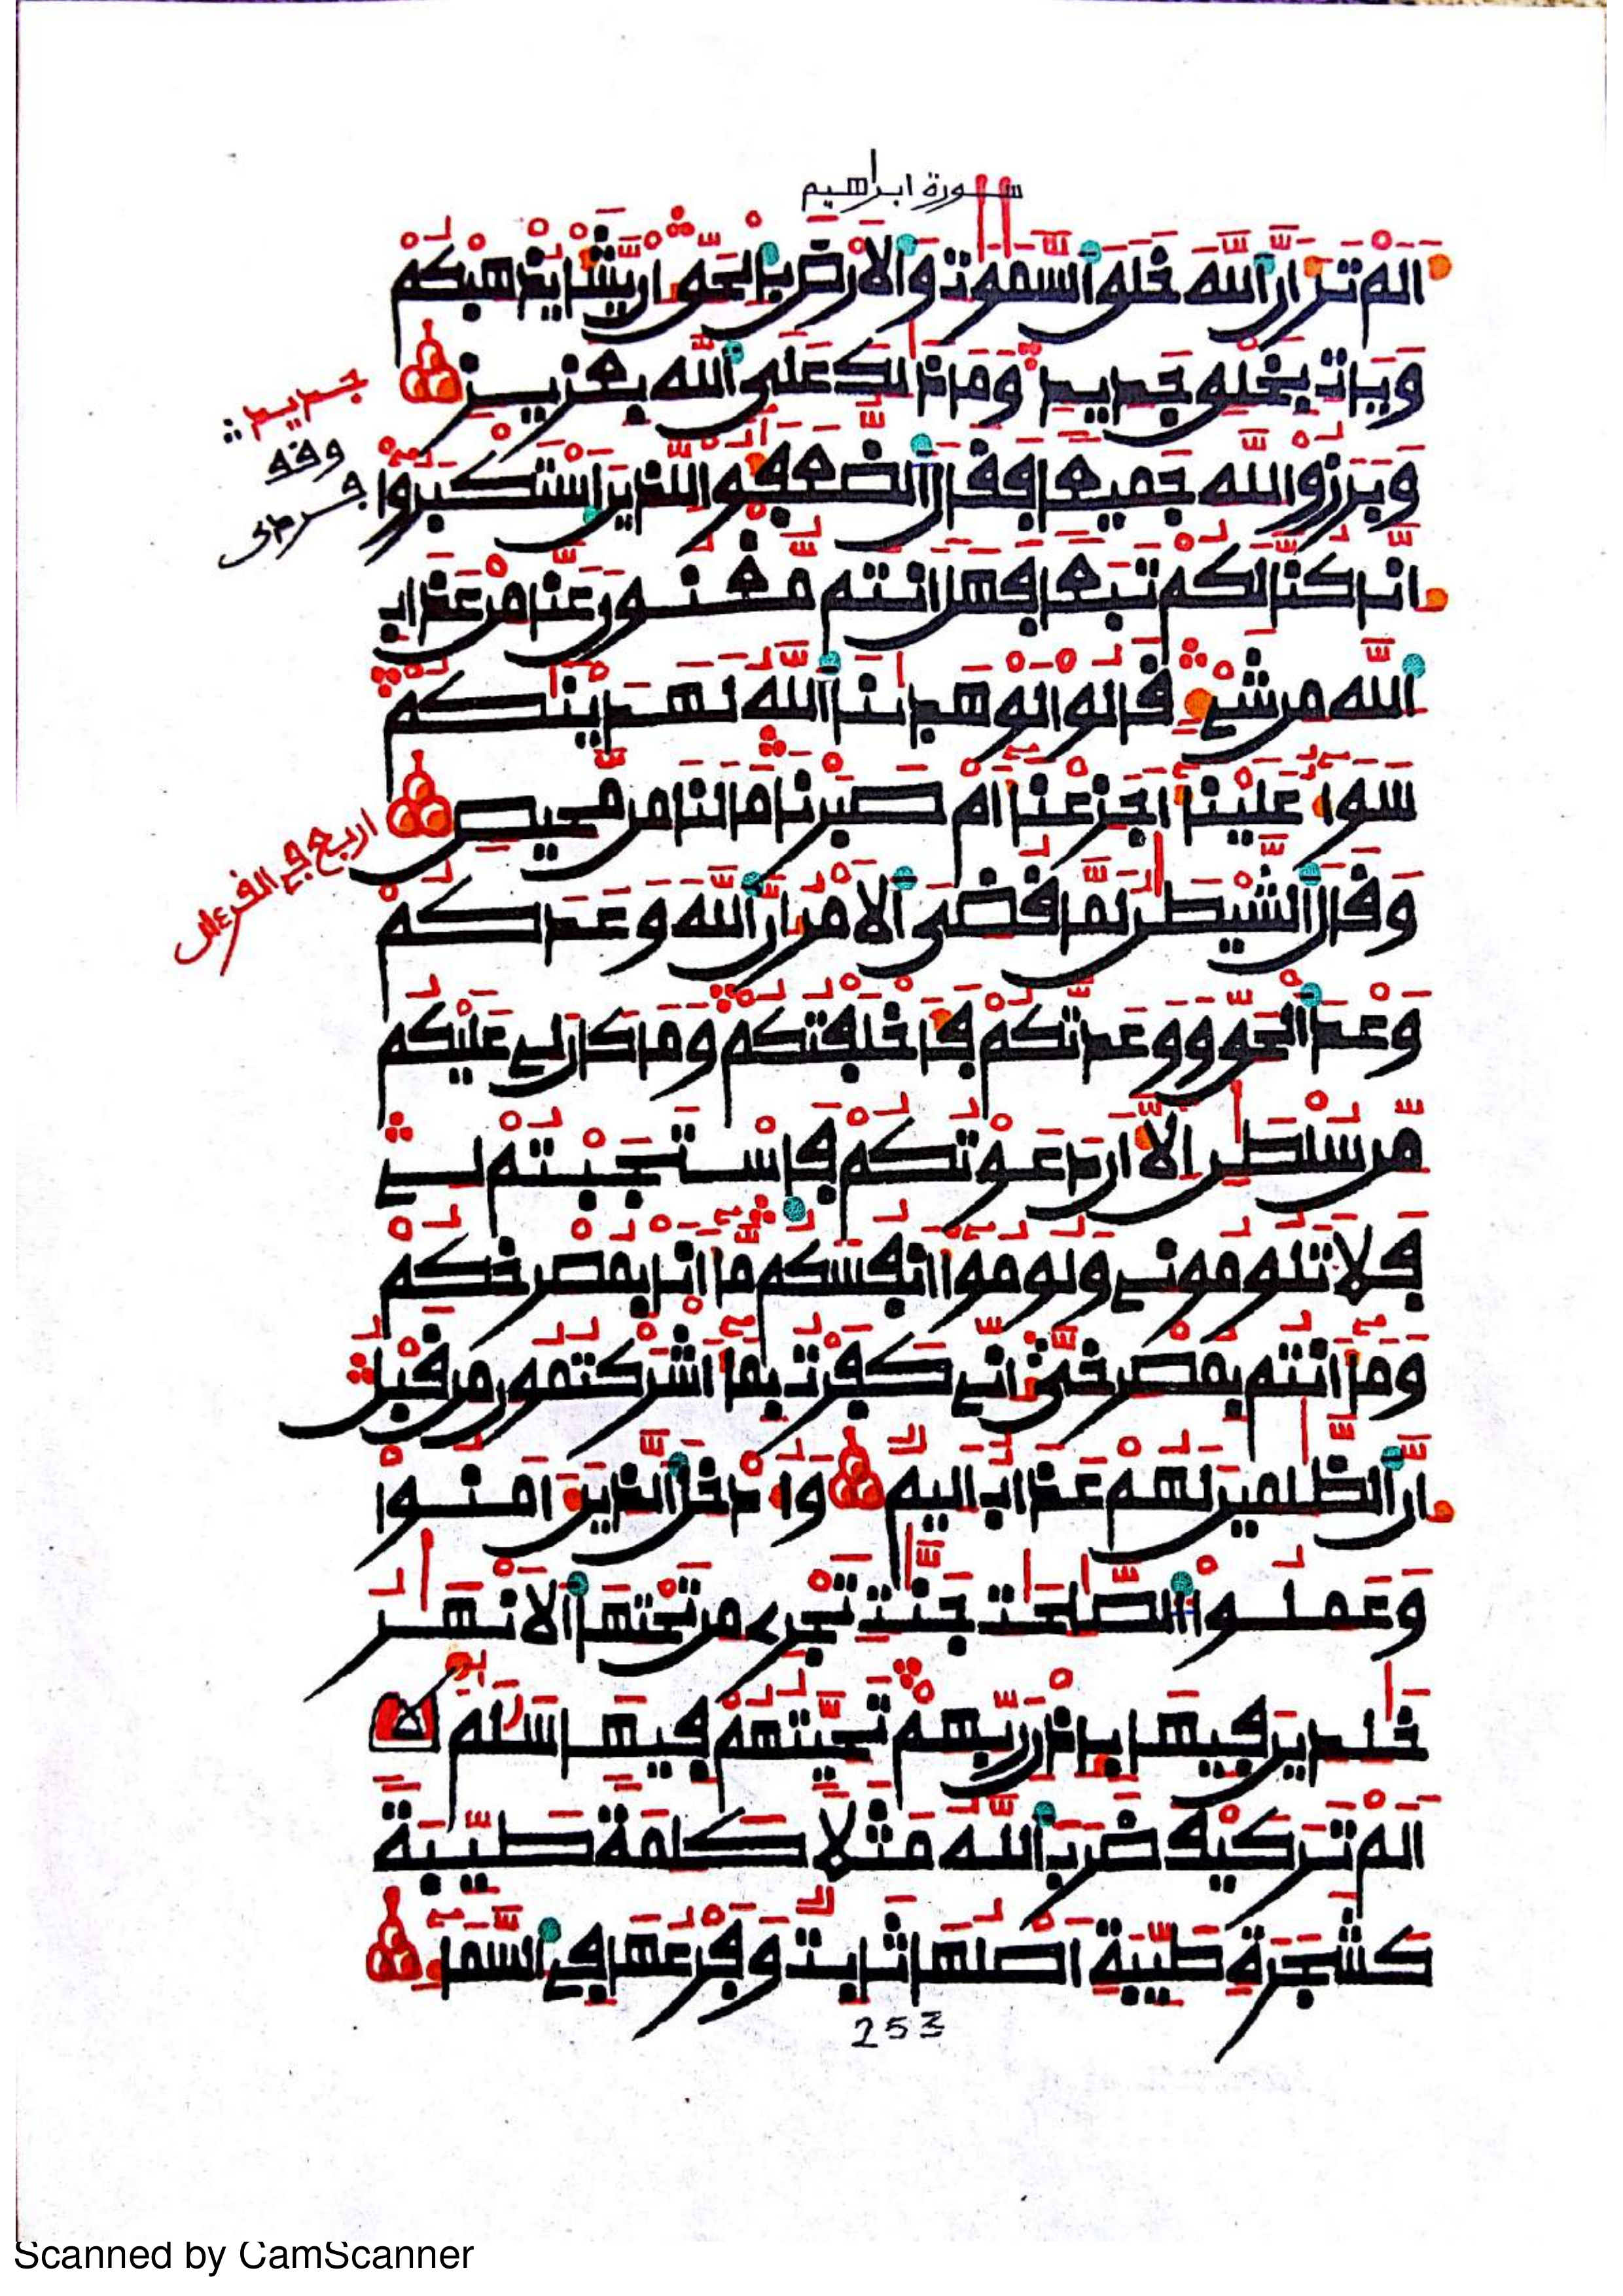 سورة ابراهيم
اَلَمْ تَرَ اَنَّ اَللَّهَ خَلَقَ اَلسَّمَٰوَٰتِ وَالَارْضَ بِالْحَقِّ إِنْ يَّشَأْ يُذْهِبْكُمْ
وَيَاتِ بِخَلْقٍ جَدِيدٍ وَمَا ذَٰلِكَ عَلَى اَللَّهِ بِعَزِيزٍ
وَبَرَزُوا لِلهِ جَمِيعًا فَقَالَ اَلضُّعَفَٰٓؤُا لِلذِينَ اَسْتَكْبَرُوٓا
إِنَّا كُنَّا لَكُمْ تَبَعًا فَهَلَ اَنتُم مُّغْنُونَ عَنَّا مِنْ عَذَابِ
اِللَّهِ مِن شَےْءٍ قَالُوا لَوْ هَدَيٰنَا اَللَّهُ لَهَدَيْنَٰكُمْ
سَوَآءٌ عَلَيْنَآ أَجَزِعْنَآ أَمْ صَبَرْنَا مَا لَنَا مِن مَّحِيصٍ
وَقَالَ اَلشَّيْطَٰنُ لَمَّا قُضِيَ اَلَامْرُ إِنَّ اَللَّهَ وَعَدَكُمْ
وَعْدَ اَلْحَقِّ وَوَعَدتُّكُمْ فَأَخْلَفْتُكُمْ وَمَا كَانَ لِي عَلَيْكُم
مِّن سُلْطَٰنٍ اِلَّآ أَن دَعَوْتُكُمْ فَاسْتَجَبْتُمْ لِے
فَلَا تَلُومُونِے وَلُومُوٓا أَنفُسَكُم مَّآ أَنَا بِمُصْرِخِكُمْ
وَمَآ أَنتُم بِمُصْرِخِيَّ إِنِّے كَفَرْتُ بِمَآ أَشْرَكْتُمُونِ مِن قَبْلُ
إِنَّ اَلظَّٰلِمِينَ لَهُمْ عَذَابٌ اَلِيمٌ وَأُدْخِلَ اَلذِينَ ءَامَنُوا
وَعَمِلُوا اَلصَّٰلِحَٰتِ جَنَّٰتٍ تَجْرِے مِن تَحْتِهَا اَلَانْهَٰرُ
خَٰلِدِينَ فِيهَا بِإِذْنِ رَبِّهِمْ تَحِيَّتُهُمْ فِيهَا سَلَٰمٌ
اَلَمْ تَرَ كَيْفَ ضَرَبَ اَللَّهُ مَثَلًا كَلِمَةً طَيِّبَةً
كَشَجَرَةٍ طَيِّبَةٍ اَصْلُهَا ثَابِتٌ وَفَرْعُهَا فِے اِلسَّمَآءِ
253
Scanned by CamScanner